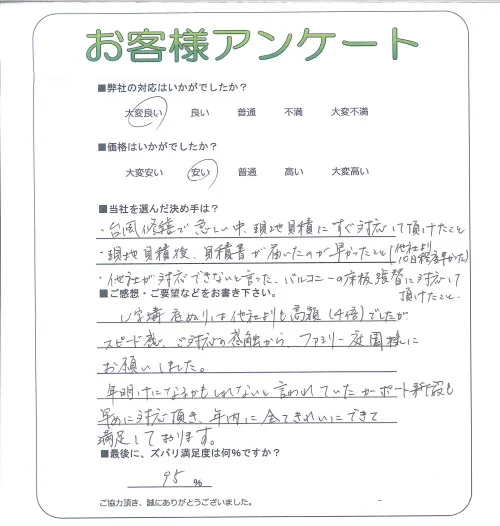 お客様アンケート
■弊社の対応はいかがでしたか？
大変良い 良い 普通 不満 大変不満
■価格はいかがでしたか？
大変安い 安い 普通 高い 大変高い
■当社を選んだ決め手は？
・台風修繕で忙しい中、現地見積にすぐ対応して頂けたこと
・現地見積後、見積書が届いたのが早かったこと(他社より
10日程早かった)
・他社が対応できないと言った、バルコニーの床板張替に対応して
頂けたこと。
■ご感想・ご要望などをお書き下さい。
底ぬりは他社よりも高額(4倍)でしたが
スピード感、ご対応の感触から、ファミリー庭園様に
お願いしました。
年明けになるかもしれないと言われていたカーポート新設も
早めに対応頂き、年内に全てきれいにできて
満足しております。
■最後に、ズバリ満足度は何%ですか？
95 %
ご協力頂き、誠にありがとうございました。